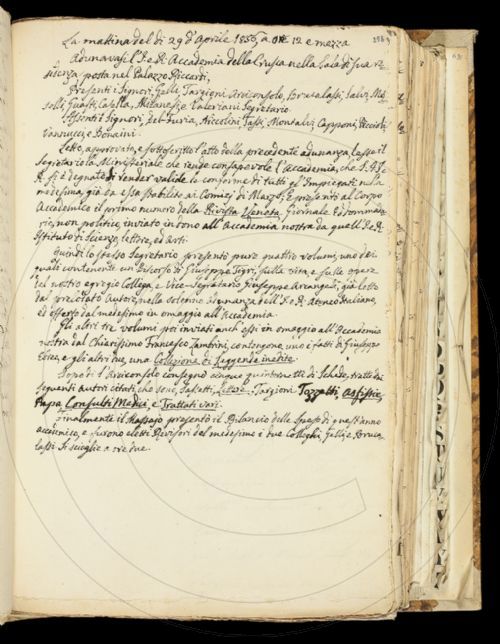 La mattina del dì 29 d'Aprile 1856, a ore 12 e mezza
Adunavasi l'I. e R. Accademia della Crusca nella Sala di sua re-
sidenza, posta nel Palazzo Riccardi,
Presenti i Signori, Gelli, Targioni, Arciconsolo, Bruscalassi, Salvi, Ma-
solli, Guasti, Casella, Milanesi, e Valeriani Segretario.
Assenti i Signori, Del-Furia, Niccolini, Tassi, Montalvi, Capponi,
Vannucci, e Bonaini.
Letto, approvato, e sottoscritto l'atto della precedente adunanza, lesse il
Segretario la Ministeriale che rende consapevole l'Accademia, che S. A. I. e
R. si è degnata di render valide le conferme di tutti gl'Impiegati nella
medesima, già da essa stabilite ai Comizj di Marzo. E presentò al Corpo
Accademico il primo numero della Rivista Veneta, Giornale
non politico, inviato in dono all'Accademia nostra da quell'I. e R.
Istituto di Scienze, lettere, ed Arti.
Quindi lo stesso Segretario presentò pure quattro volumi, uno dei
quali contenente un Discorso di Giuseppe Tigri, sulla vita, e sulle opere
del nostro egregio Collega, e Vice-Segretario Giuseppe Arcangeli, già letto
dal precitato Autore, nella solenne adunanza dell'I. e R. Ateneo Italiano,
ed offerto dal medesimo in omaggio all'Accademia.
Gli altri tre volumi poi inviati anch'essi in omaggio all'Accademia
nostra dal Chiarissimo Francesco Zambrini, contengono, uno i fatti di Giuseppe
Ebreo, e gli altri due, una Collezione di Leggende inedite.
Dopo di l'Arciconsolo consegnò cinque quinternetti di Schede, tratte dai
seguenti Autori citati, che sono, Sassetti, Lettere; Targioni Tozzetti,
Papa, Consulti Medici, e Trattati vari.
Finalmente il Massajo presentò il Bilancio delle Spese di quest'anno
accademico, e furono eletti Revisori del medesimo i due Colleghi, Gelli, e Brusca-
lassi. Si sciolse a ore due.